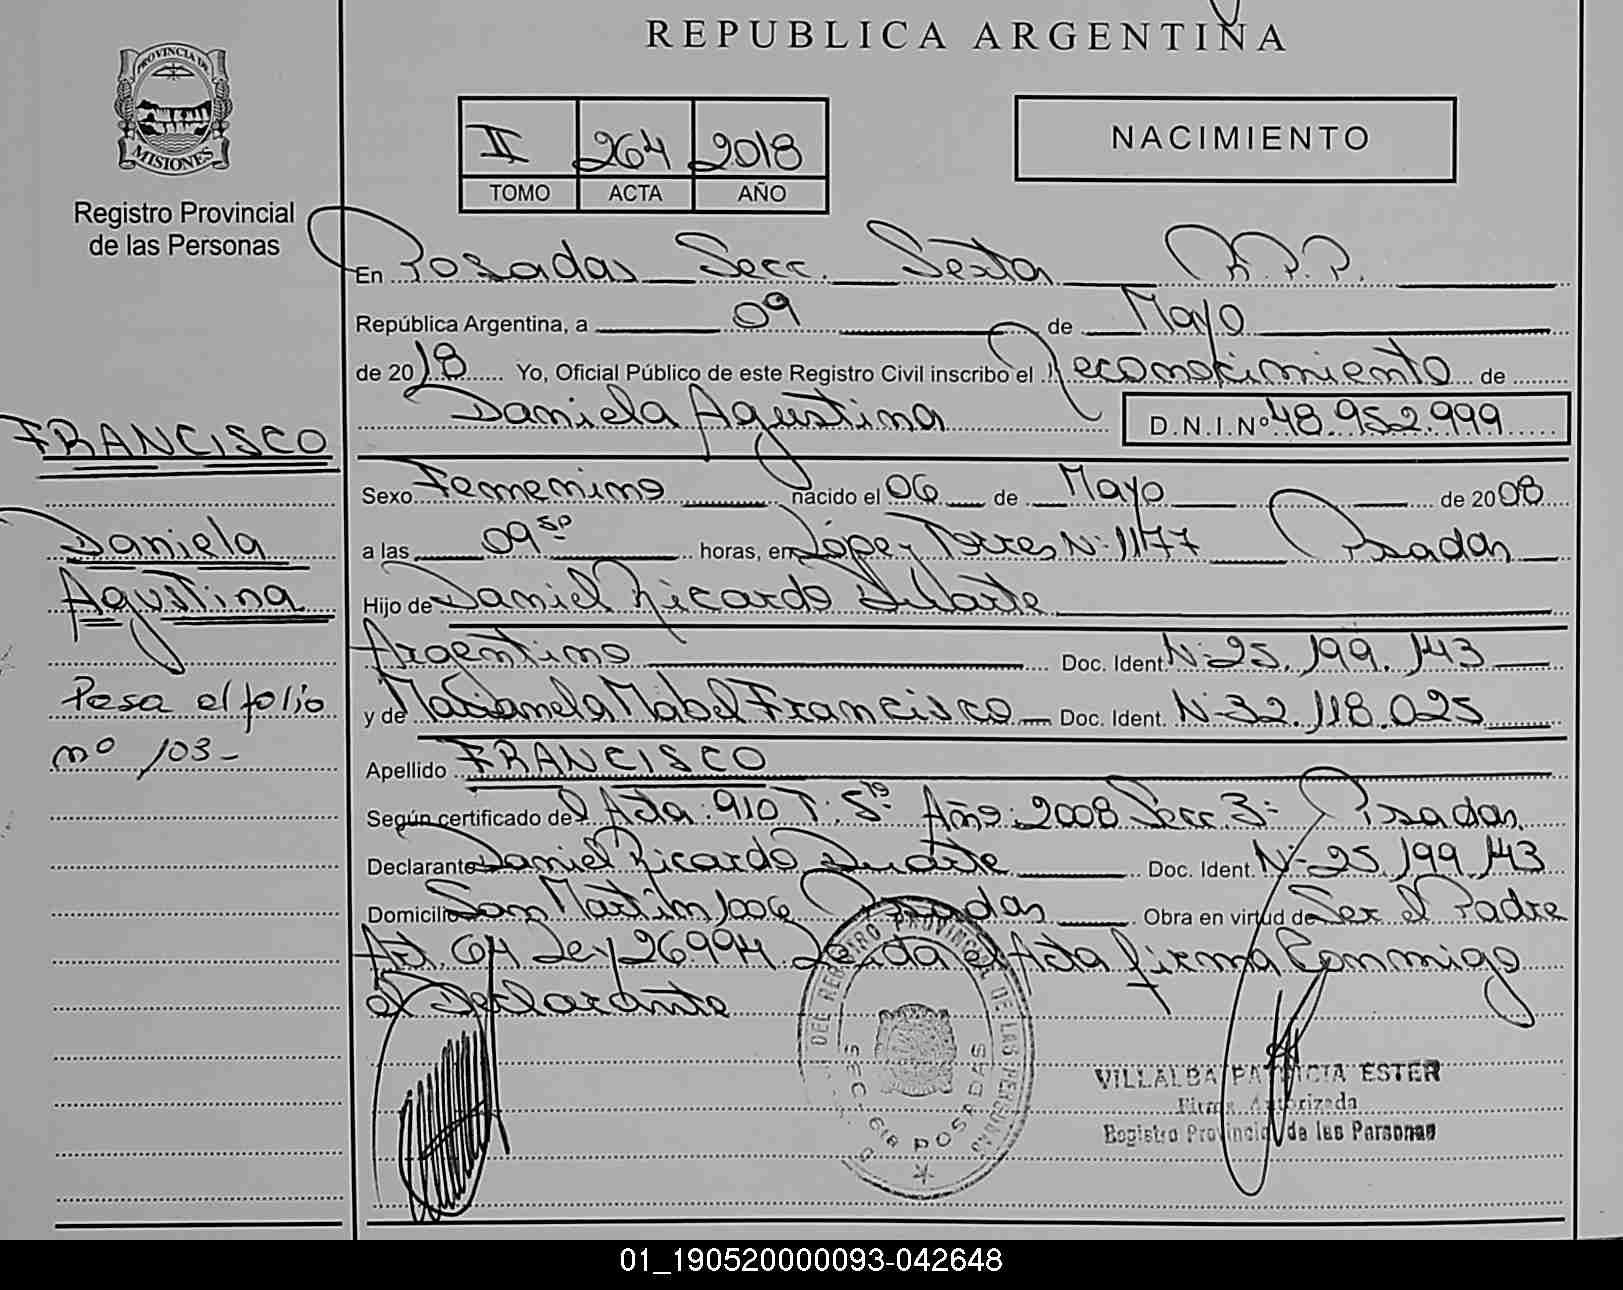 REPUBLICA ARGENTINA
PROVINCIA DE
MISIONES
Registro Provincial
de las Personas
II 264 2018
TOMO ACTA AÑO
NACIMIENTO
En Posadas Secc. Sexta R.P.P.
República Argentina, a 09 de Mayo
de 2018 Yo, Oficial Público de este Registro Civil inscribo el Reconocimiento de
Daniela Agustina D.N.I.Nº 48.952.999
Sexo Femenino nacido el 06 de Mayo de 2008
a las 09 50 horas, en López y Torres Nº 1177 Posadas
Hijo de Daniel Ricardo Duarte
Argentino Doc. Ident. Nº 25.199.143
y de Marianela Mabel Francisco Doc. Ident. Nº 32.118.025
Apellido FRANCISCO
Según certificado del Acta: 910 T: 5to Año: 2008 Secc. 3º Posadas
Declarante Daniel Ricardo Duarte Doc. Ident. Nº 25.199.143
Domicilio San Martín Posadas Obra en virtud de Ser el Padre
Art. 64 Ley 26994. Leída el Acta firma Conmigo
el Declarante
FRANCISCO
Daniela
Agustina
Pasa el folio
nº 103-
DEL REGISTRO PROVINCIAL DE LAS PERSONAS
SECC. 6ta POSADAS
VILLALBA PATRICIA ESTER
Firma Autorizada
Registro Provincial de las Personas
01_190520000093-042648